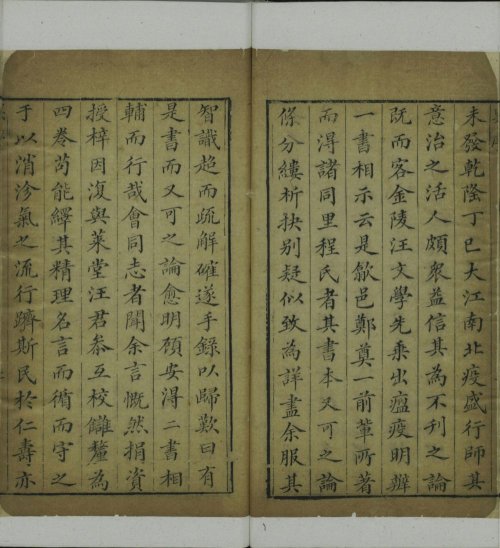 未發乾隆丁巳大江南北疫盛行師其
意治之活人頗衆益信其為不刊之論
既而客金陵汪文學先乘出瘟疫明辨
一書相示云是歙邑鄭奠一前軰所著
而得諸同里程氏者其書本又可之論
條分縷析抉別疑似致為詳盡余服其
智識超而疏解確遂手錄以歸歎曰有
是書而又可之論愈明顧安得二書相
輔而行哉會同志者聞余言慨然捐資
授梓因復與萊堂汪君叅互校讎釐為
四卷苟能繹其精理名言而循而守之
于以消沴氣之流行躋斯民於仁壽亦